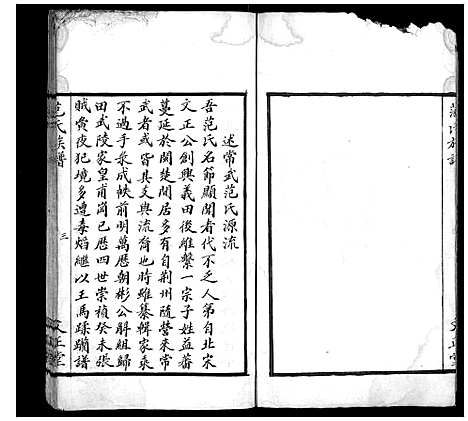 述常武范氏源流
吾范氏名節顯聞者代不乏人第自北宋
文正公創興義田後雖繫一宗子姓益蕃
蔓延於閩楚間居多有自荊州隨營來常
武者或皆其支與流裔也時雖纂輯家乘
不過手录成帙前明萬曆朝彬公解組歸
田武陵家皇甫簡已歷四世崇禎癸未張
賊夤夜犯境多遭毒焰繼以王馬蹂躪譜
范氏族譜
三
文正堂
范氏族譜
文正堂